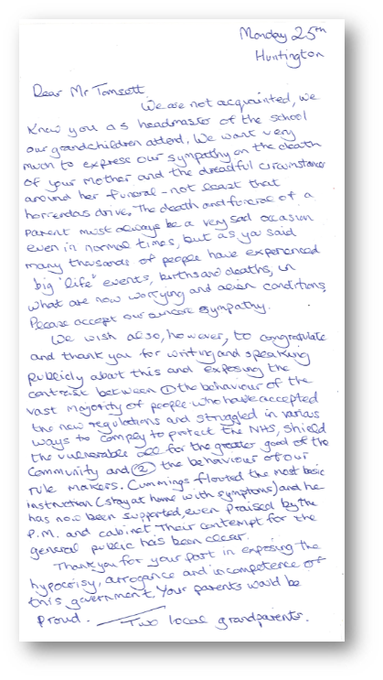 Monday 25th
Huntington
Dear Mr Tomsett,
We are not acquainted, we
know you as headmaster of the school
our grandchildren attend. We want very
much to express our sympathy on the death
of your Mother and the dreadful circumstances
around her funeral - not least that
horrendous drive. The death and funeral of a
parent must always be a very sad occasion
even in normal times, but as you said
many thousands of people have experienced
big "life" events, births and deaths, in
what are now worrying and alien conditions.
Please accept our sincere sympathy.
We wish also, however, to congratulate
and thank you for writing and speaking
publicly about this and exposing the
contrast between ① the behaviour of the
vast majority of people who have accepted
the new regulations and struggled in various
ways to comply to protect the NHS, shield
the vulnerable all for the greater good of the
community and ② the behaviour of our
rule makers. Cummings flouted the most basic
instruction (stay at home with symptoms) and he
has now been supported, even praised by the
P.M. and cabinet. Their contempt for the
general public has been clear.
Thank you for your part in exposing the
hypocrisy, arrogance and incompetence of
this government. Your parents would be
proud. Two local grandparents.